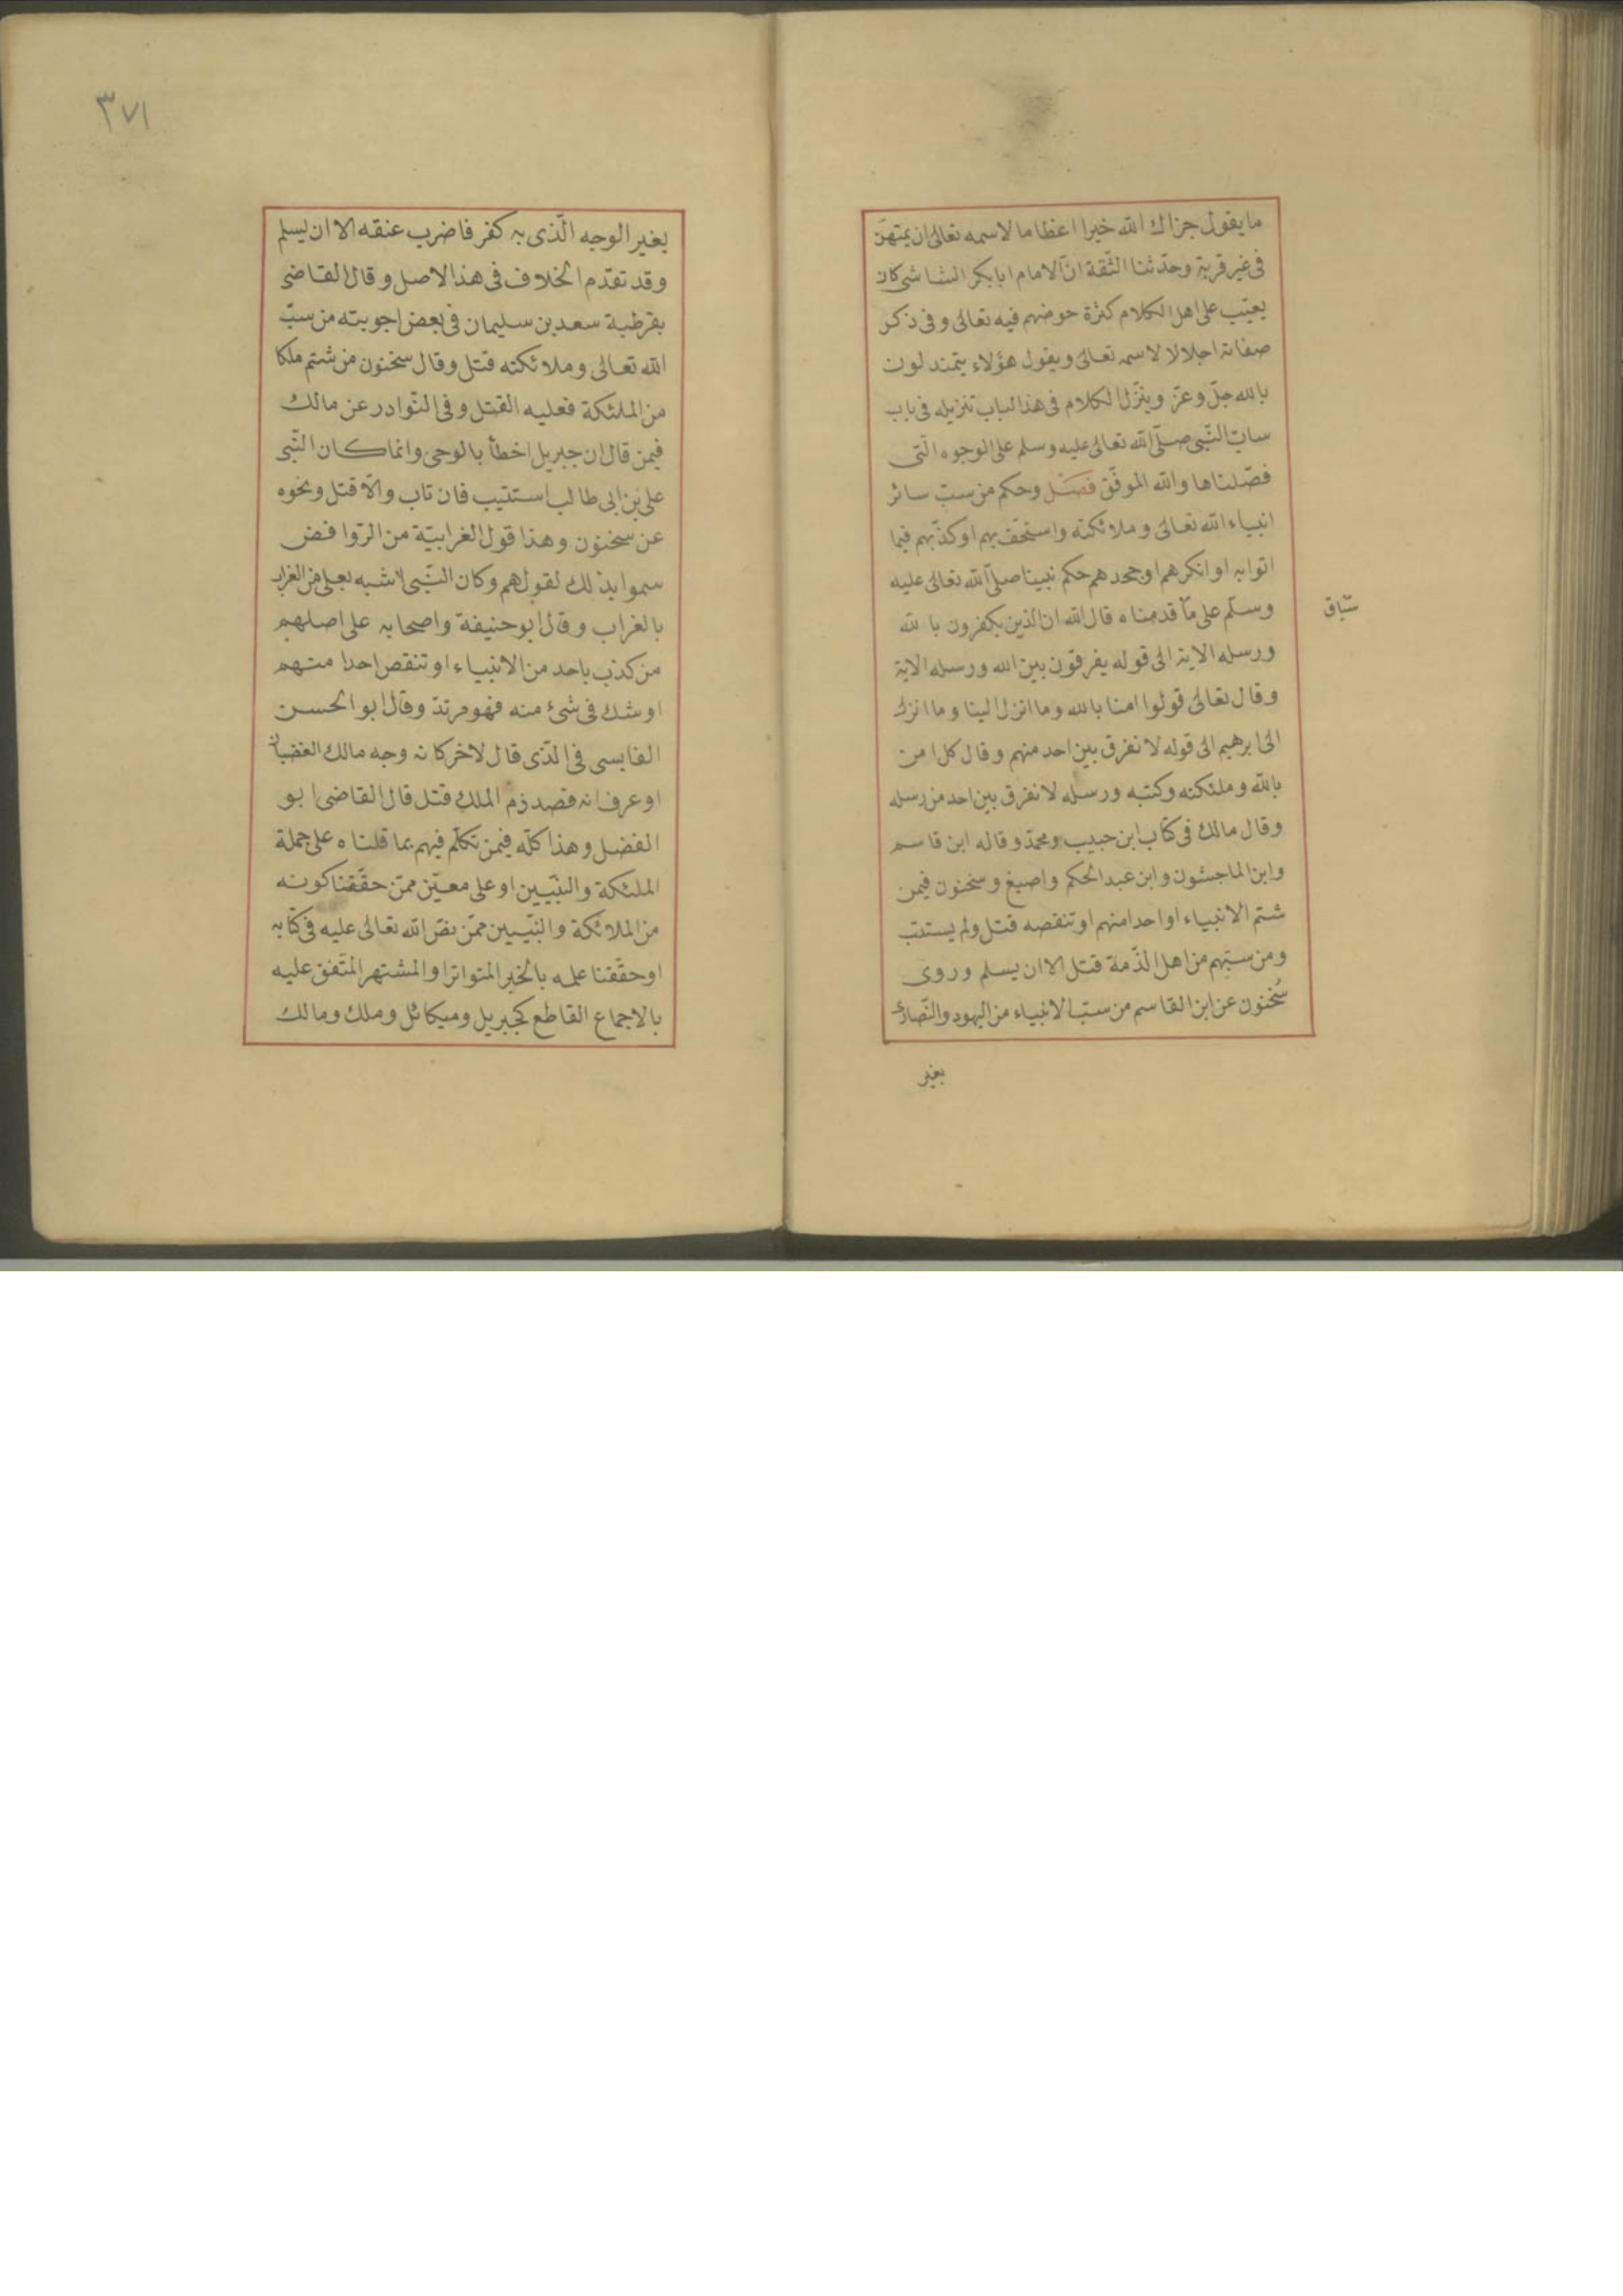 ما يقول جزاك الله خيرا اعظاما لاسمه تعالى ان يمتهن
فى غير قربة وحدّثنا الثّقة انّ الامام ابا بكر الشاشى كان
يعيّب على اهل الكلام كثرة خوضهم فيه تعالى وفى ذكر
صفاته اجلالا لاسمه تعالى ويقول هؤلاء يتمندلون
بالله جلّ وعزّ وينزّل الكلام فى هذا الباب تنزيله فى باب
سابّ النّبى صلّى الله تعالى عليه وسلم على الوجوه الّتى
فصّلناها والله الموفّق فصَل وحكم من سبّ سائر
انبياء الله تعالى وملائكته واستخفّ بهم او كذّبهم فيما
اتوا به او انكرهم او جحدهم حكم نبينا صلّى الله تعالى عليه
وسلّم على مآ قدمناه قال الله ان الذين يكفرون بالله
ورسله الاية الى قوله يفرقون بين الله ورسله الاية
وقال تعالى قولوا امنا بالله وما انزل الينا وما انزل
الى ابرهيم الى قوله لا نفرق بين احد منهم وقال كل امن
بالله وملئكته وكتبه ورسله لا نفرق بين احد من رسله
وقال مالك فى كتاب ابن حبيب ومحمّد وقاله ابن قاسم
وابن الماجشون وابن عبد الحكم واصبغ وسحنون فيمن
شتم الانبياء او احدا منهم او تنقصه قتل ولم يستتب
ومن سبّهم من اهل الذّمة قتل الا ان يسلم وروى
سُحنون عن ابن القاسم من سبّ الانبياء من اليهود والنّصارى
بغير
٣٧١
بغير الوجه الّذى به كفر فاضرب عنقه الا ان يسلم
وقد تقدّم الخلاف فى هذا الاصل وقال القاضى
بقرطبة سعيد بن سليمان فى بعض اجوبته من سبّ
الله تعالى وملائكته قتل وقال سحنون من شتم ملكا
من الملئكة فعليه القتل وفى النّوادر عن مالك
فيمن قال ان جبريل اخطأ بالوحى وانما كان النّبى
على بن ابى طالب استتيب فان تاب والّا قتل ونحوه
عن سحنون وهذا قول الغرابيّة من الرّوافض
سموا بذلك لقولهم وكان النّبى اشبه بعلى من الغراب
بالغراب وقال ابو حنيفة واصحابه على اصلهم
من كذب باحد من الانبياء او تنقص احدا منهم
او شك فى شئ منه فهو مرتدّ وقال ابو الحسن
القابسى فى الّذى قال لاخر كانه وجه مالك الغضبان
او عرف انه قصد ذم الملك قتل قال القاضى ابو
الفضل وهذا كلّه فيمن تكلّم فيهم بما قلناه على جملة
الملئكة والنبّيين او على معيّن ممّن حقّقنا كونه
من الملائكة والنّبيين ممّن نصّ الله تعالى عليه فى كتابه
او حقّقنا علمه بالخبر المتواتر او المشتهر المتّفق عليه
بالاجماع القاطع كجبريل وميكائل وملك ومالك